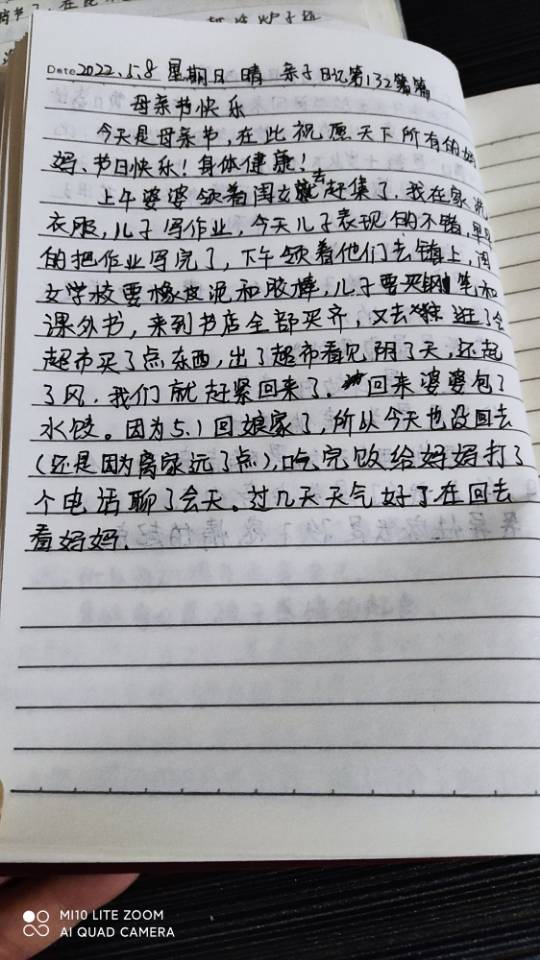 Date 2022.5.8 星期日 晴 亲子日记第132篇
母亲节快乐
今天是母亲节,在此祝愿天下所有的妈
妈、节日快乐!身体健康!
上午婆婆领着闺女就去赶集了,我在家洗
衣服,儿子写作业,今天儿子表现的不错,早早
的把作业写完了,下午领着他们去镇上,闺
女学校要橡皮泥和胶棒,儿子要买钢笔和
课外书,来到书店全部买齐,又去逛了会
超市买了点东西,出了超市看见阴了天,还起
了风.我们就赶紧回来了.回来婆婆包了
水饺。因为5.1回娘家了,所以今天也没回去
(还是因为离家远了点),吃完饭给妈妈打了
个电话聊了会天。过几天天气好了在回去
看妈妈.
MI 10 LITE ZOOM
AI QUAD CAMERA